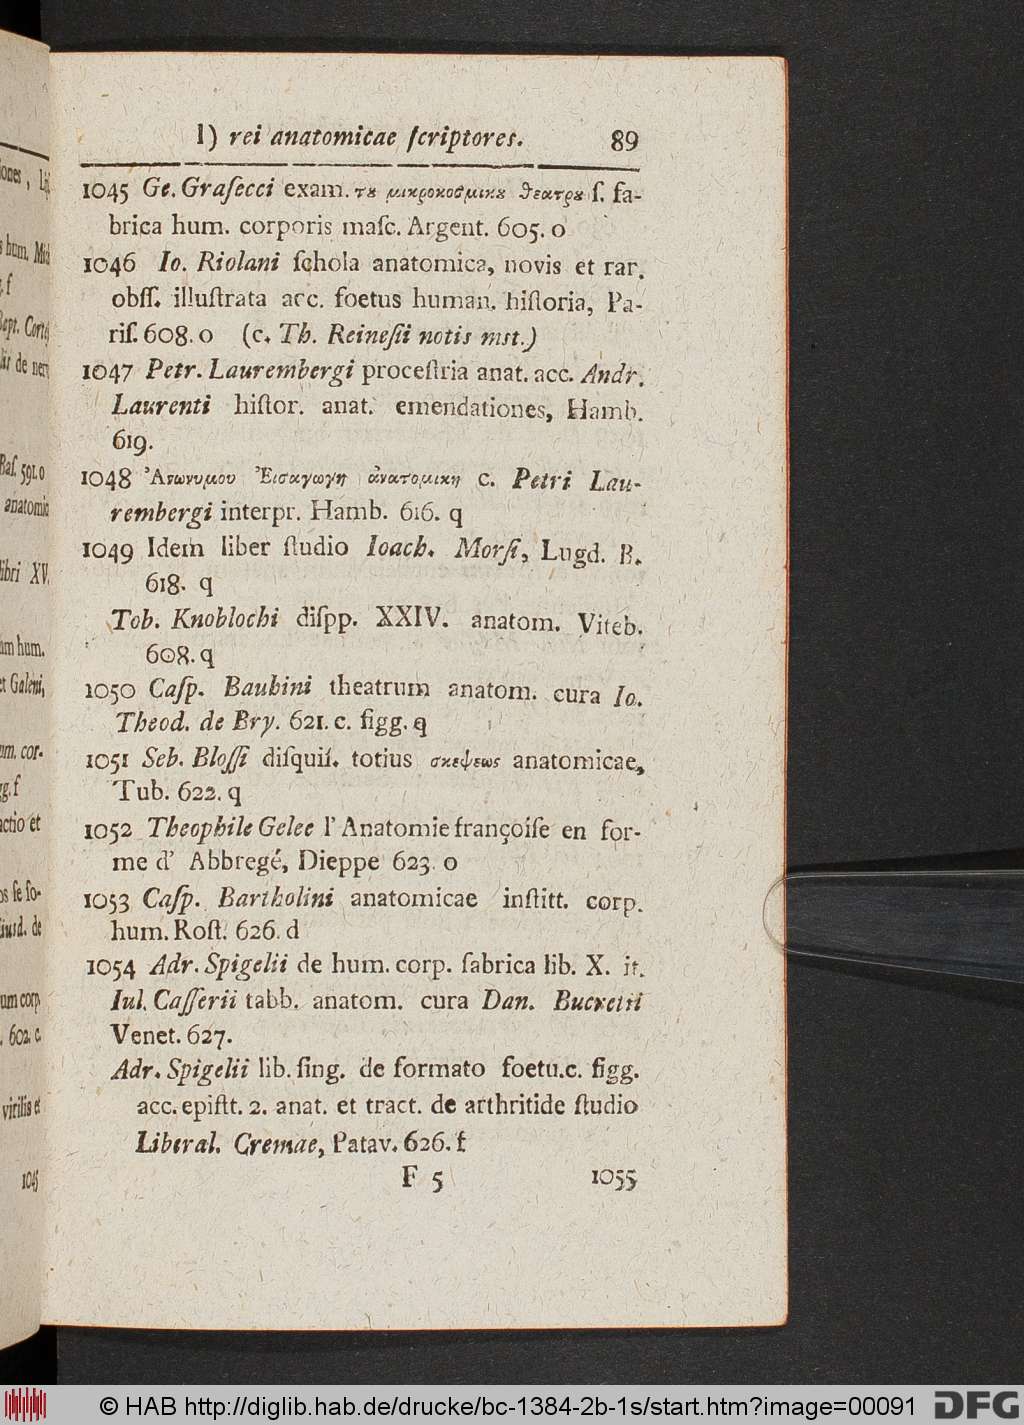 1) rei anatomicae ſcriptores. 89
1045 Ge. Graſecci exam. τȣ μικροκοσμικȣ θεατρȣ ſ. fa-
brica hum. corporis maſc. Argent. 605. o
1046 Io. Riolani ſchola anatomica, novis et rar.
obſſ. illuſtrata acc. foetus human. hiſtoria, Pa-
riſ. 608. o (c. Th. Reineſii notis mst.)
1047 Petr. Laurembergi proceſtria anat. acc. Andr.
Laurenti hiſtor. anat. emendationes, Hamb.
619.
1048 Ἀνωνυμου Ἐισαγωγη ἀνατομικη c. Petri Lau-
rembergi interpr. Hamb. 616. q
1049 Idem liber ſtudio Ioach. Morſi, Lugd. B.
618. q
Tob. Knoblochi diſpp. XXIV. anatom. Viteb.
608. q
1050 Caſp. Bauhini theatrum anatom. cura Io.
Theod. de Bry. 621. c. figg. q
1051 Seb. Bloſſi diſquiſ. totius σκεψεως anatomicae,
Tub. 622. q
1052 Theophile Gelee l' Anatomie françoiſe en for-
me d' Abbregé, Dieppe 623. o
1053 Caſp. Bartholini anatomicae inſtitt. corp.
hum. Roſt. 626. d
1054 Adr. Spigelii de hum. corp. fabrica lib. X. it.
Iul. Caſſerii tabb. anatom. cura Dan. Bucretii
Venet. 627.
Adr. Spigelii lib. ſing. de formato foetu. c. figg.
acc. epiſtt. 2. anat. et tract. de arthritide ſtudio
Liberal. Cremae, Patav. 626. f
F 5 1055
© HAB http://diglib.hab.de/drucke/bc-1384-2b-1s/start.htm?image=00091
DFG